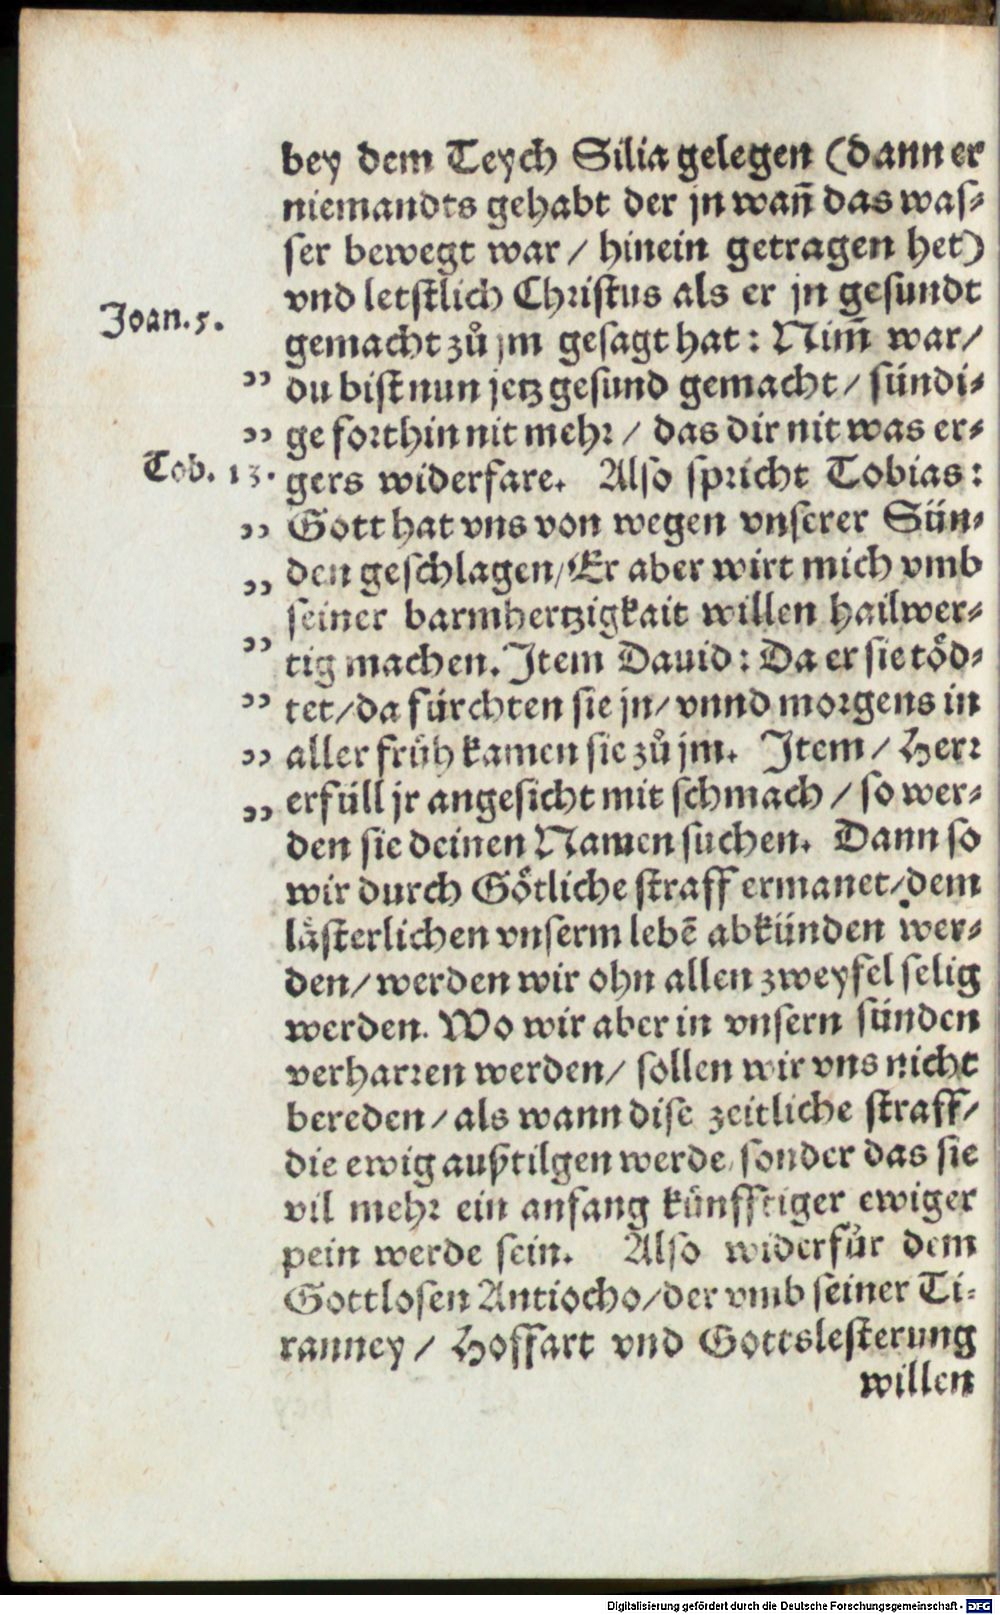 bey dem Teych Silia gelegen (dann er
niemandts gehabt der jn wañ das was⸗
ser bewegt war / hinein getragen het)
vnd letstlich Christus als er jn gesundt
Joan. 5.
gemacht zů jm gesagt hat: Nim̃ war /
" du bist nun jetz gesund gemacht / sündi⸗
" ge forthin nit mehr / das dir nit was er⸗
Tob. 13.
gers widerfare. Also spricht Tobias:
" Gott hat vns von wegen vnserer Sün⸗
" den geschlagen / Er aber wirt mich vmb
seiner barmhertzigkait willen hailwer⸗
" tig machen. Item Dauid: Da er sie töd⸗
" tet / da fürchten sie jn / vnnd morgens in
" aller früh kamen sie zů jm. Item / Herr
" erfüll jr angesicht mit schmach / so wer⸗
den sie deinen Namen suchen. Dann so
wir durch Götliche straff ermanet / dem
lästerlichen vnserm lebē abkünden wer⸗
den / werden wir ohn allen zweyfel selig
werden. Wo wir aber in vnsern sünden
verharren werden / sollen wir vns nicht
bereden / als wann dise zeitliche straff /
die ewig außtilgen werde / sonder das sie
vil mehr ein anfang künfftiger ewiger
pein werde sein. Also widerfůr dem
Gottlosen Antiocho / der vmb seiner Ti⸗
ranney / Hoffart vnd Gottslesterung
willen
Digitalisierung gefördert durch die Deutsche Forschungsgemeinschaft - DFG